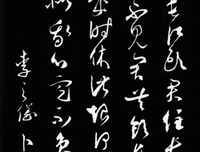 長江頭君住長
不見君共飲
幾時休此恨何
似我心定不負
李之儀卜